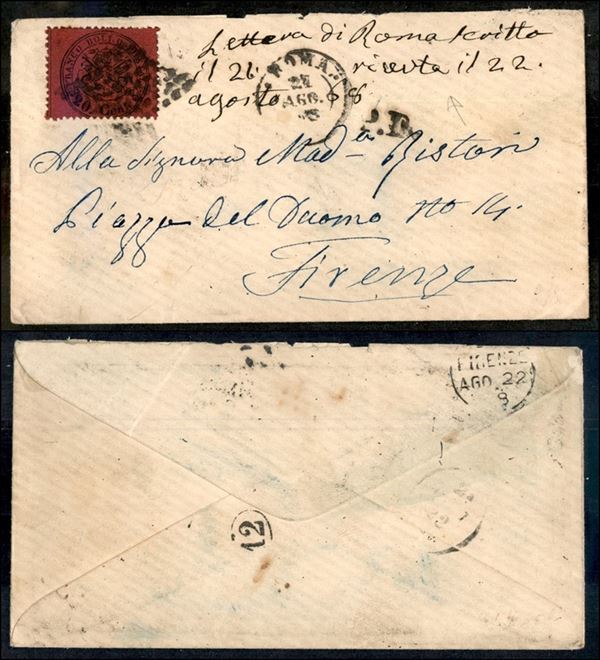 Lettera di Roma scritto
il 21. ricevta il 22.
agosto 68
ROMA
21
AGO.
68
P.D.
Alla Signora Mad.a Ristori
Piazza del Duomo No 14.
Firenze
FIRENZE
AGO. 22
8
12